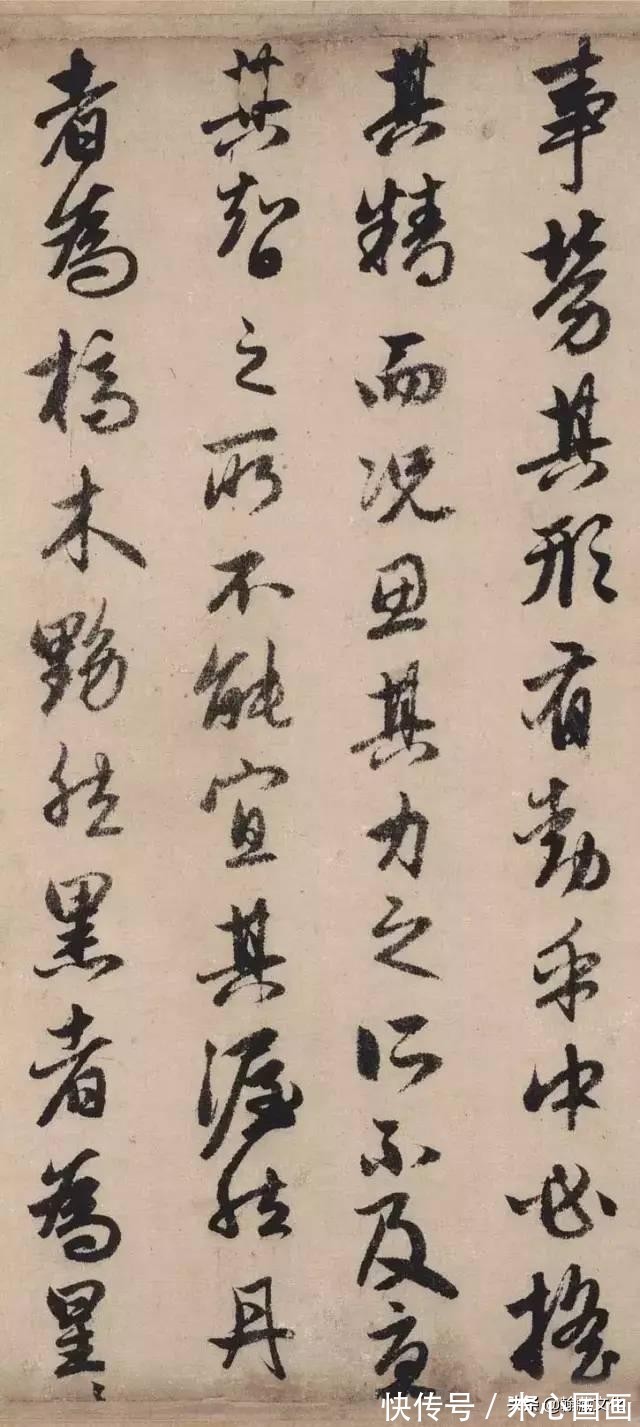 事勞其形有動乎中必搖
其精而况思其力之所不及憂
其智之所不能宜其渥然丹
者為槁木黟然黑者為星〻
快传号 / 米心国画